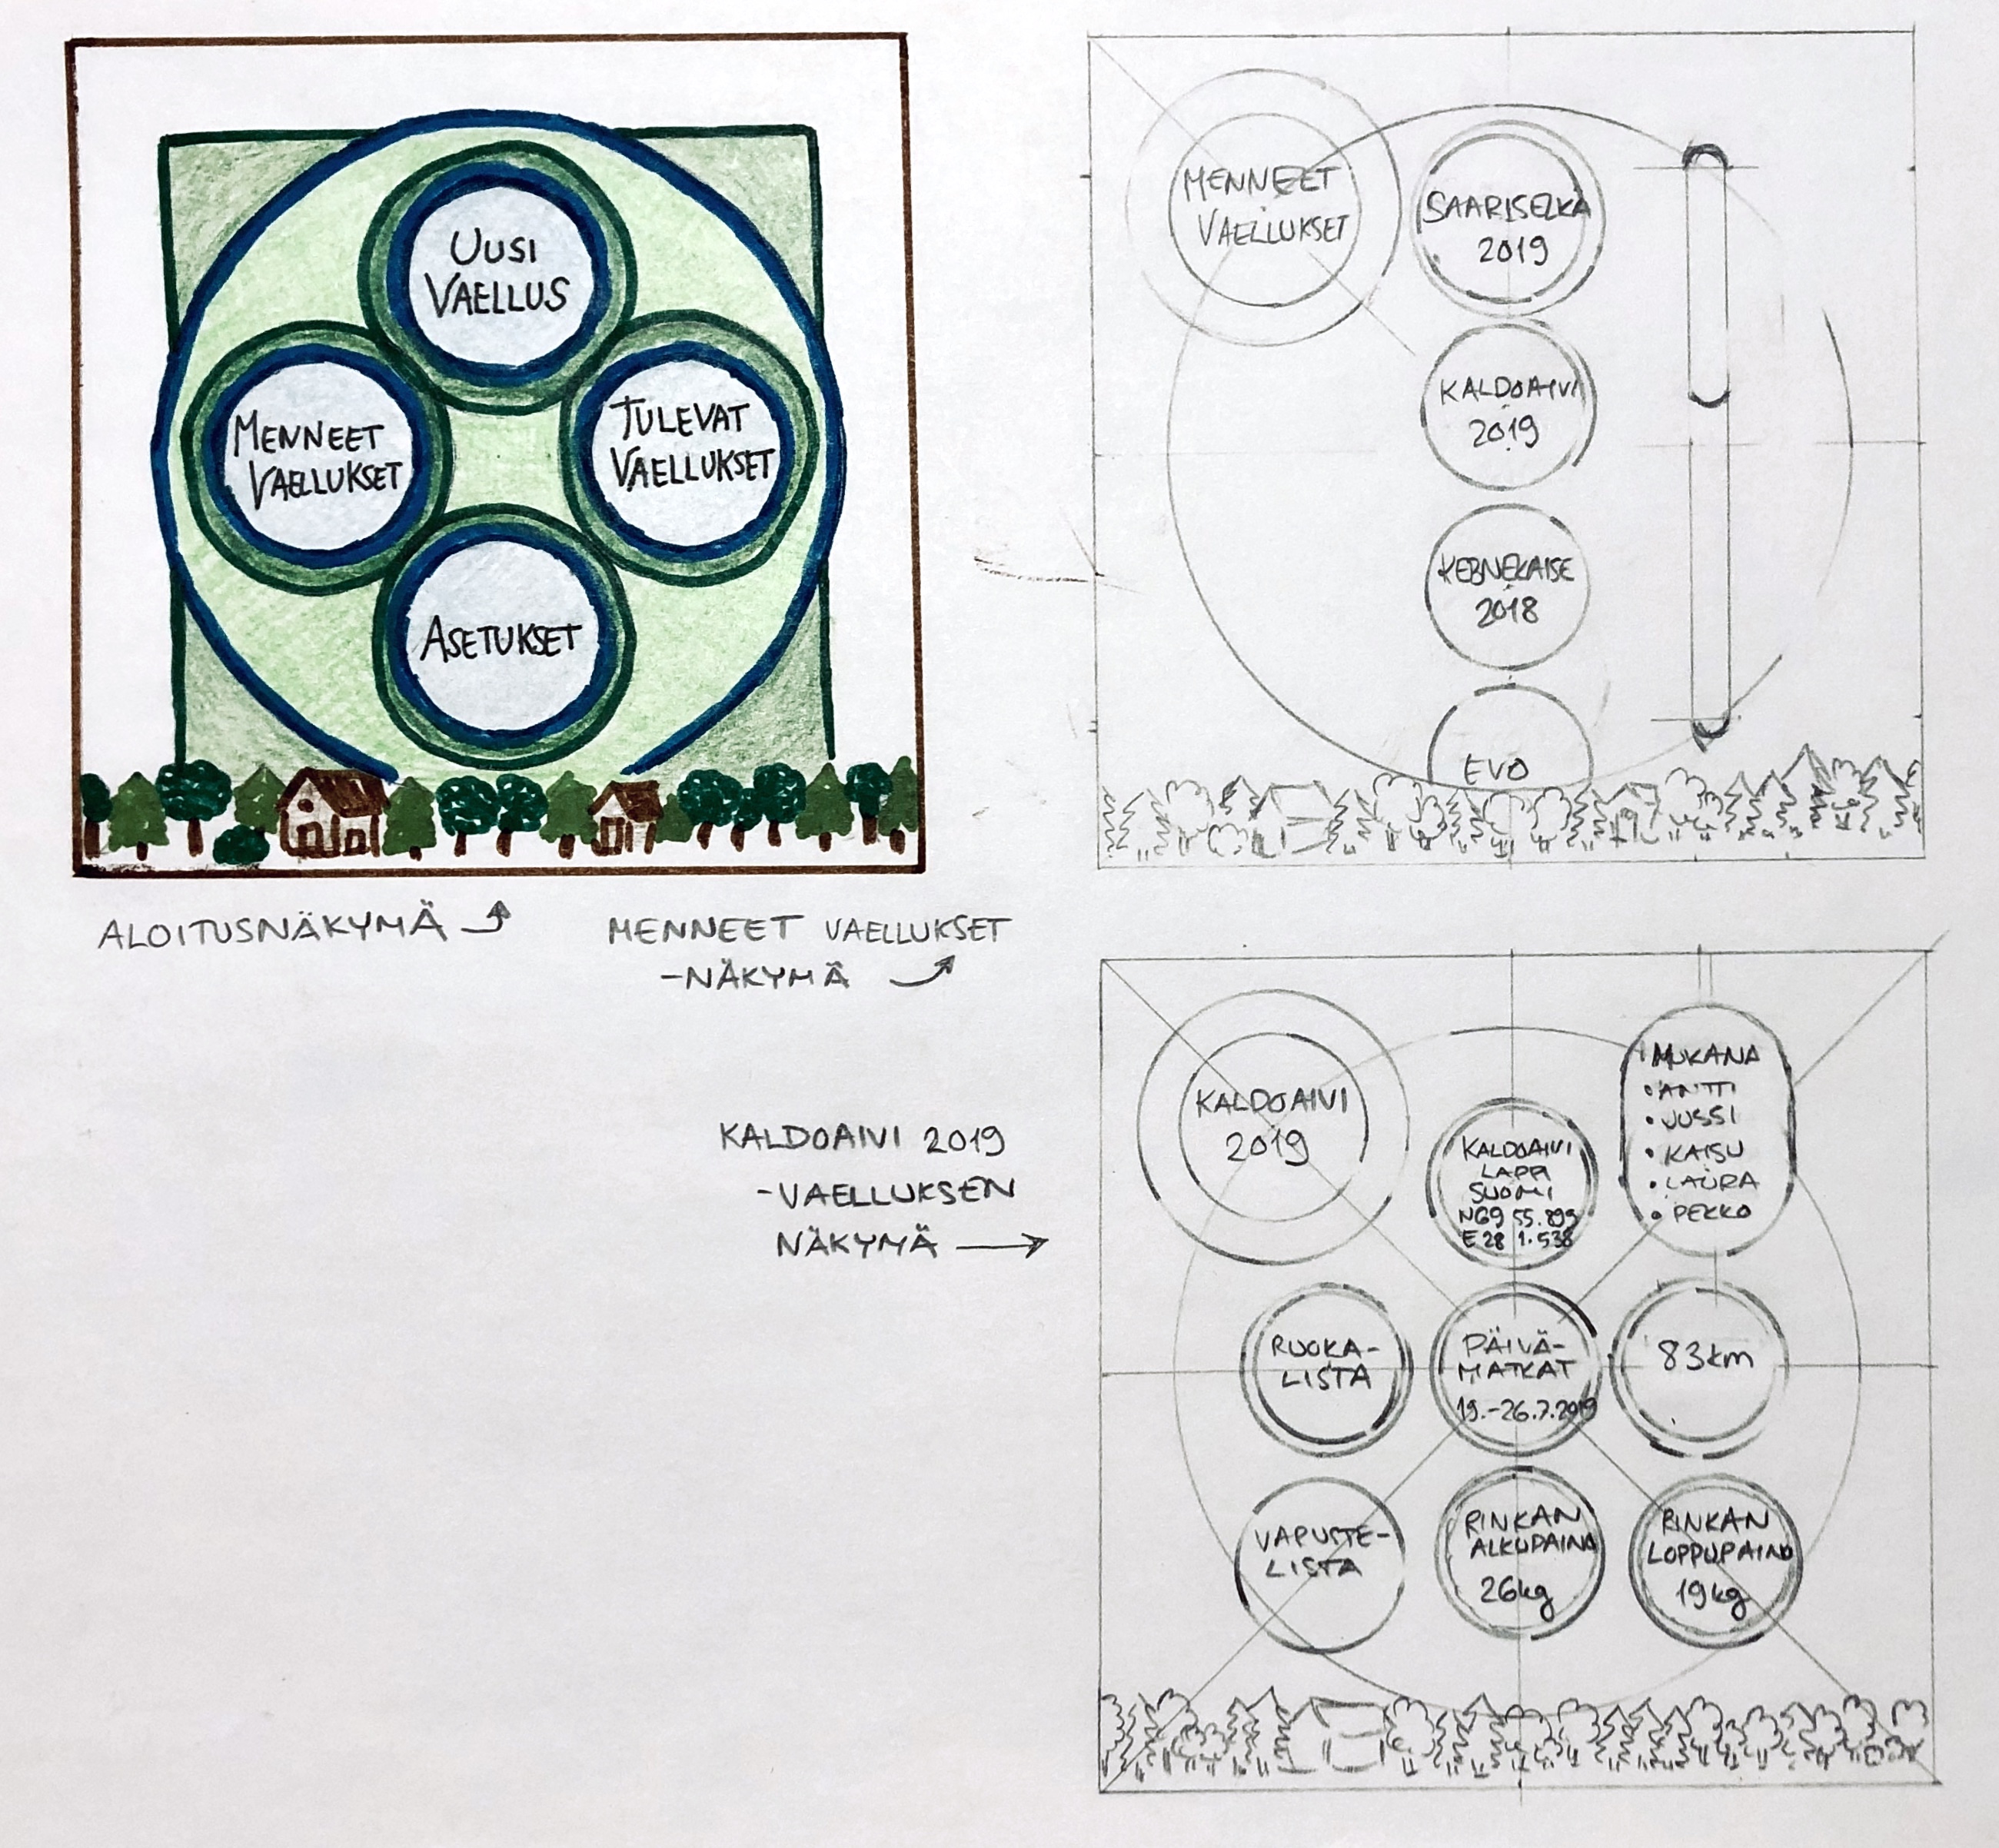 UUSI
VAELLUS
MENNEET
VAELLUKSET
TULEVAT
VAELLUKSET
ASETUKSET
ALOITUSNÄKYMÄ
MENNEET VAELLUKSET
-NÄKYMÄ
MENNEET
VAELLUKSET
SAARISELKÄ
2019
KALDOAIVI
2019
KEBNEKAISE
2018
EVO
KALDOAIVI 2019
-VAELLUKSEN
NÄKYMÄ
KALDOAIVI
2019
KALDOAIVI
LAPPI
SUOMI
N69 55.899
E28 1.538
MUKANA
• ANTTI
• JUSSI
• KAISU
• LAURA
• PEKKO
RUOKA-
LISTA
PÄIVÄ-
MATKAT
19.-26.7.2019
83km
VARUSTE-
LISTA
RINKAN
ALKUPAINO
26kg
RINKAN
LOPPUPAINO
19kg